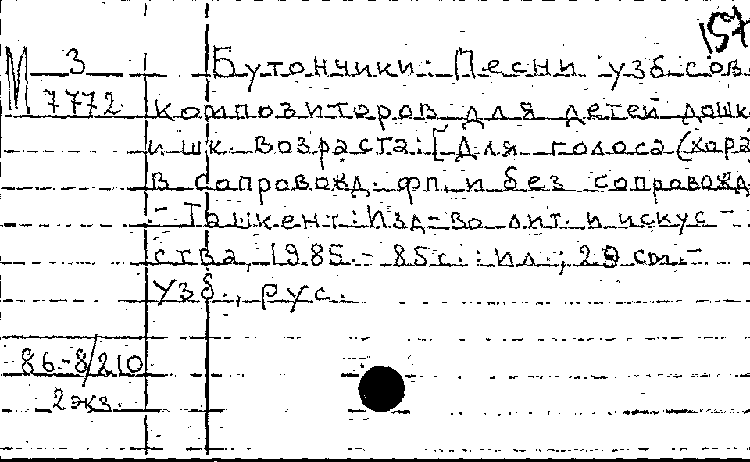 157
М 3 Бутончики: Песни узб. сов.
7772 композиторов для детей дошк.
и шк. возраста: [Для голоса (хора
в сопровожд. фп. и без сопровожд
- Ташкент: Изд-во лит. и искус-
ства, 1985.- 85с.: ил.; 29 см.-
Узб., рус.
86.-8/210
2 экз.